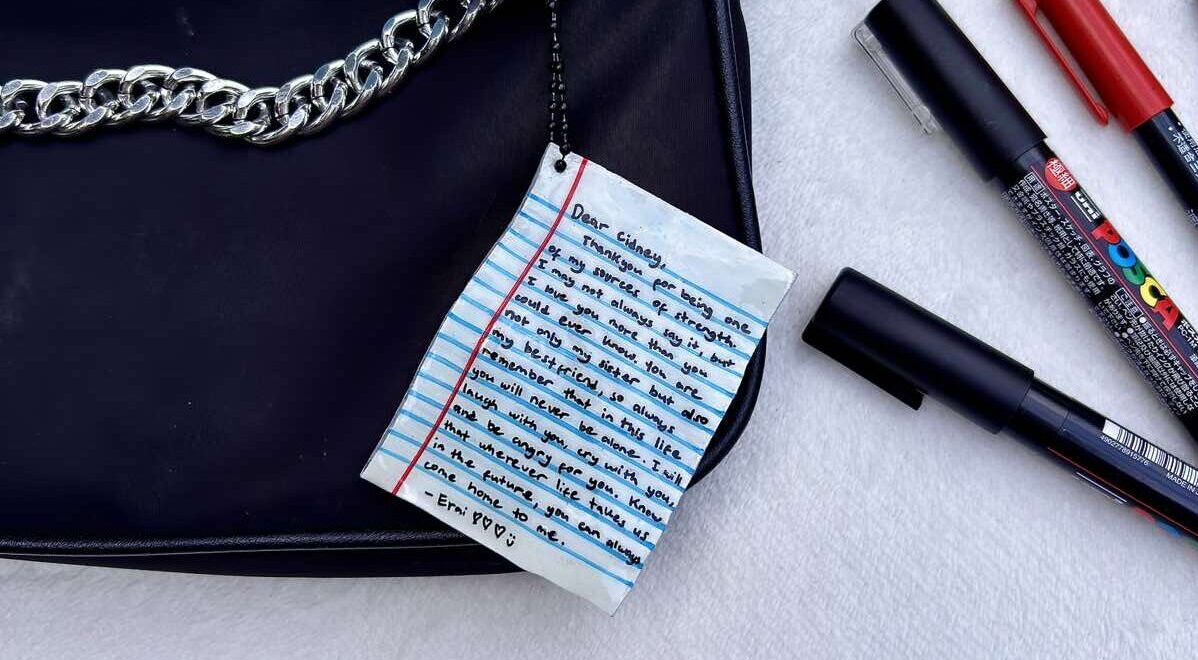 Dear Cidney,
Thankyou for being one
of my sources of strength.
I may not always say it, but
I love you more than you
could ever know. You are
not only my sister but also
my bestfriend, so always
remember that in this life
you will never be alone. I will
laugh with you, cry with you,
and be angry for you. Know
that wherever life takes us
in the future, you can always
come home to me.
-Erni ♡♡♡ :)
極細
uni
POSCA
4902778915776
MADE IN